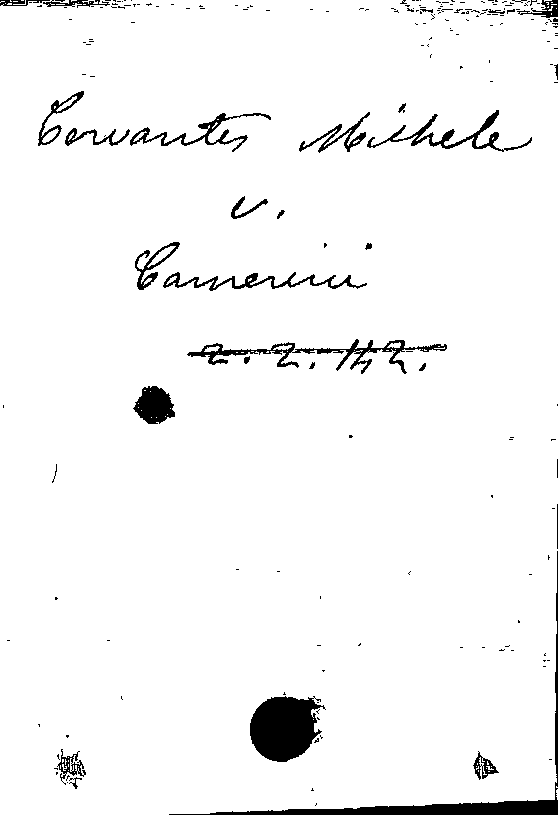 Cervantes Michele
v.
Camerini
2. 2. 142.